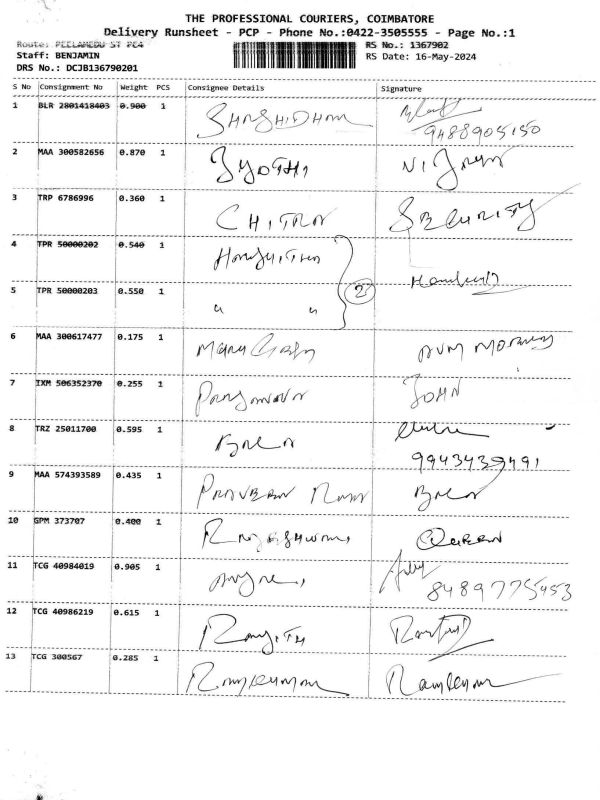 THE PROFESSIONAL COURIERS, COIMBATORE
Delivery Runsheet - PCP - Phone No.:0422-3505555 - Page No.:1
Route: PEELAMEDU ST PC4 RS No.: 1367902
Staff: BENJAMIN RS Date: 16-May-2024
DRS No.: DCJB136790201
S No Consignment No Weight PCS Consignee Details Signature
1 BLR 2801418403 0.900 1
9488905150
2 MAA 300582656 0.870 1 JYOTHI
3 TRP 6786996 0.360 1 CHITRA SECURITY
4 TPR 50000202 0.540 1
2
5 TPR 50000203 0.550 1 " "
6 MAA 300617477 0.175 1
7 IXM 506352370 0.255 1 JOHN
8 TRZ 25011700 0.595 1
9943439491
9 MAA 574393589 0.435 1 PRAVEEN
10 GPM 373707 0.400 1 QUEEN
11 TCG 40984019 0.905 1
8489775453
12 TCG 40986219 0.615 1 RANJITH
13 TCG 300567 0.285 1 Ramkumar Ramkumar